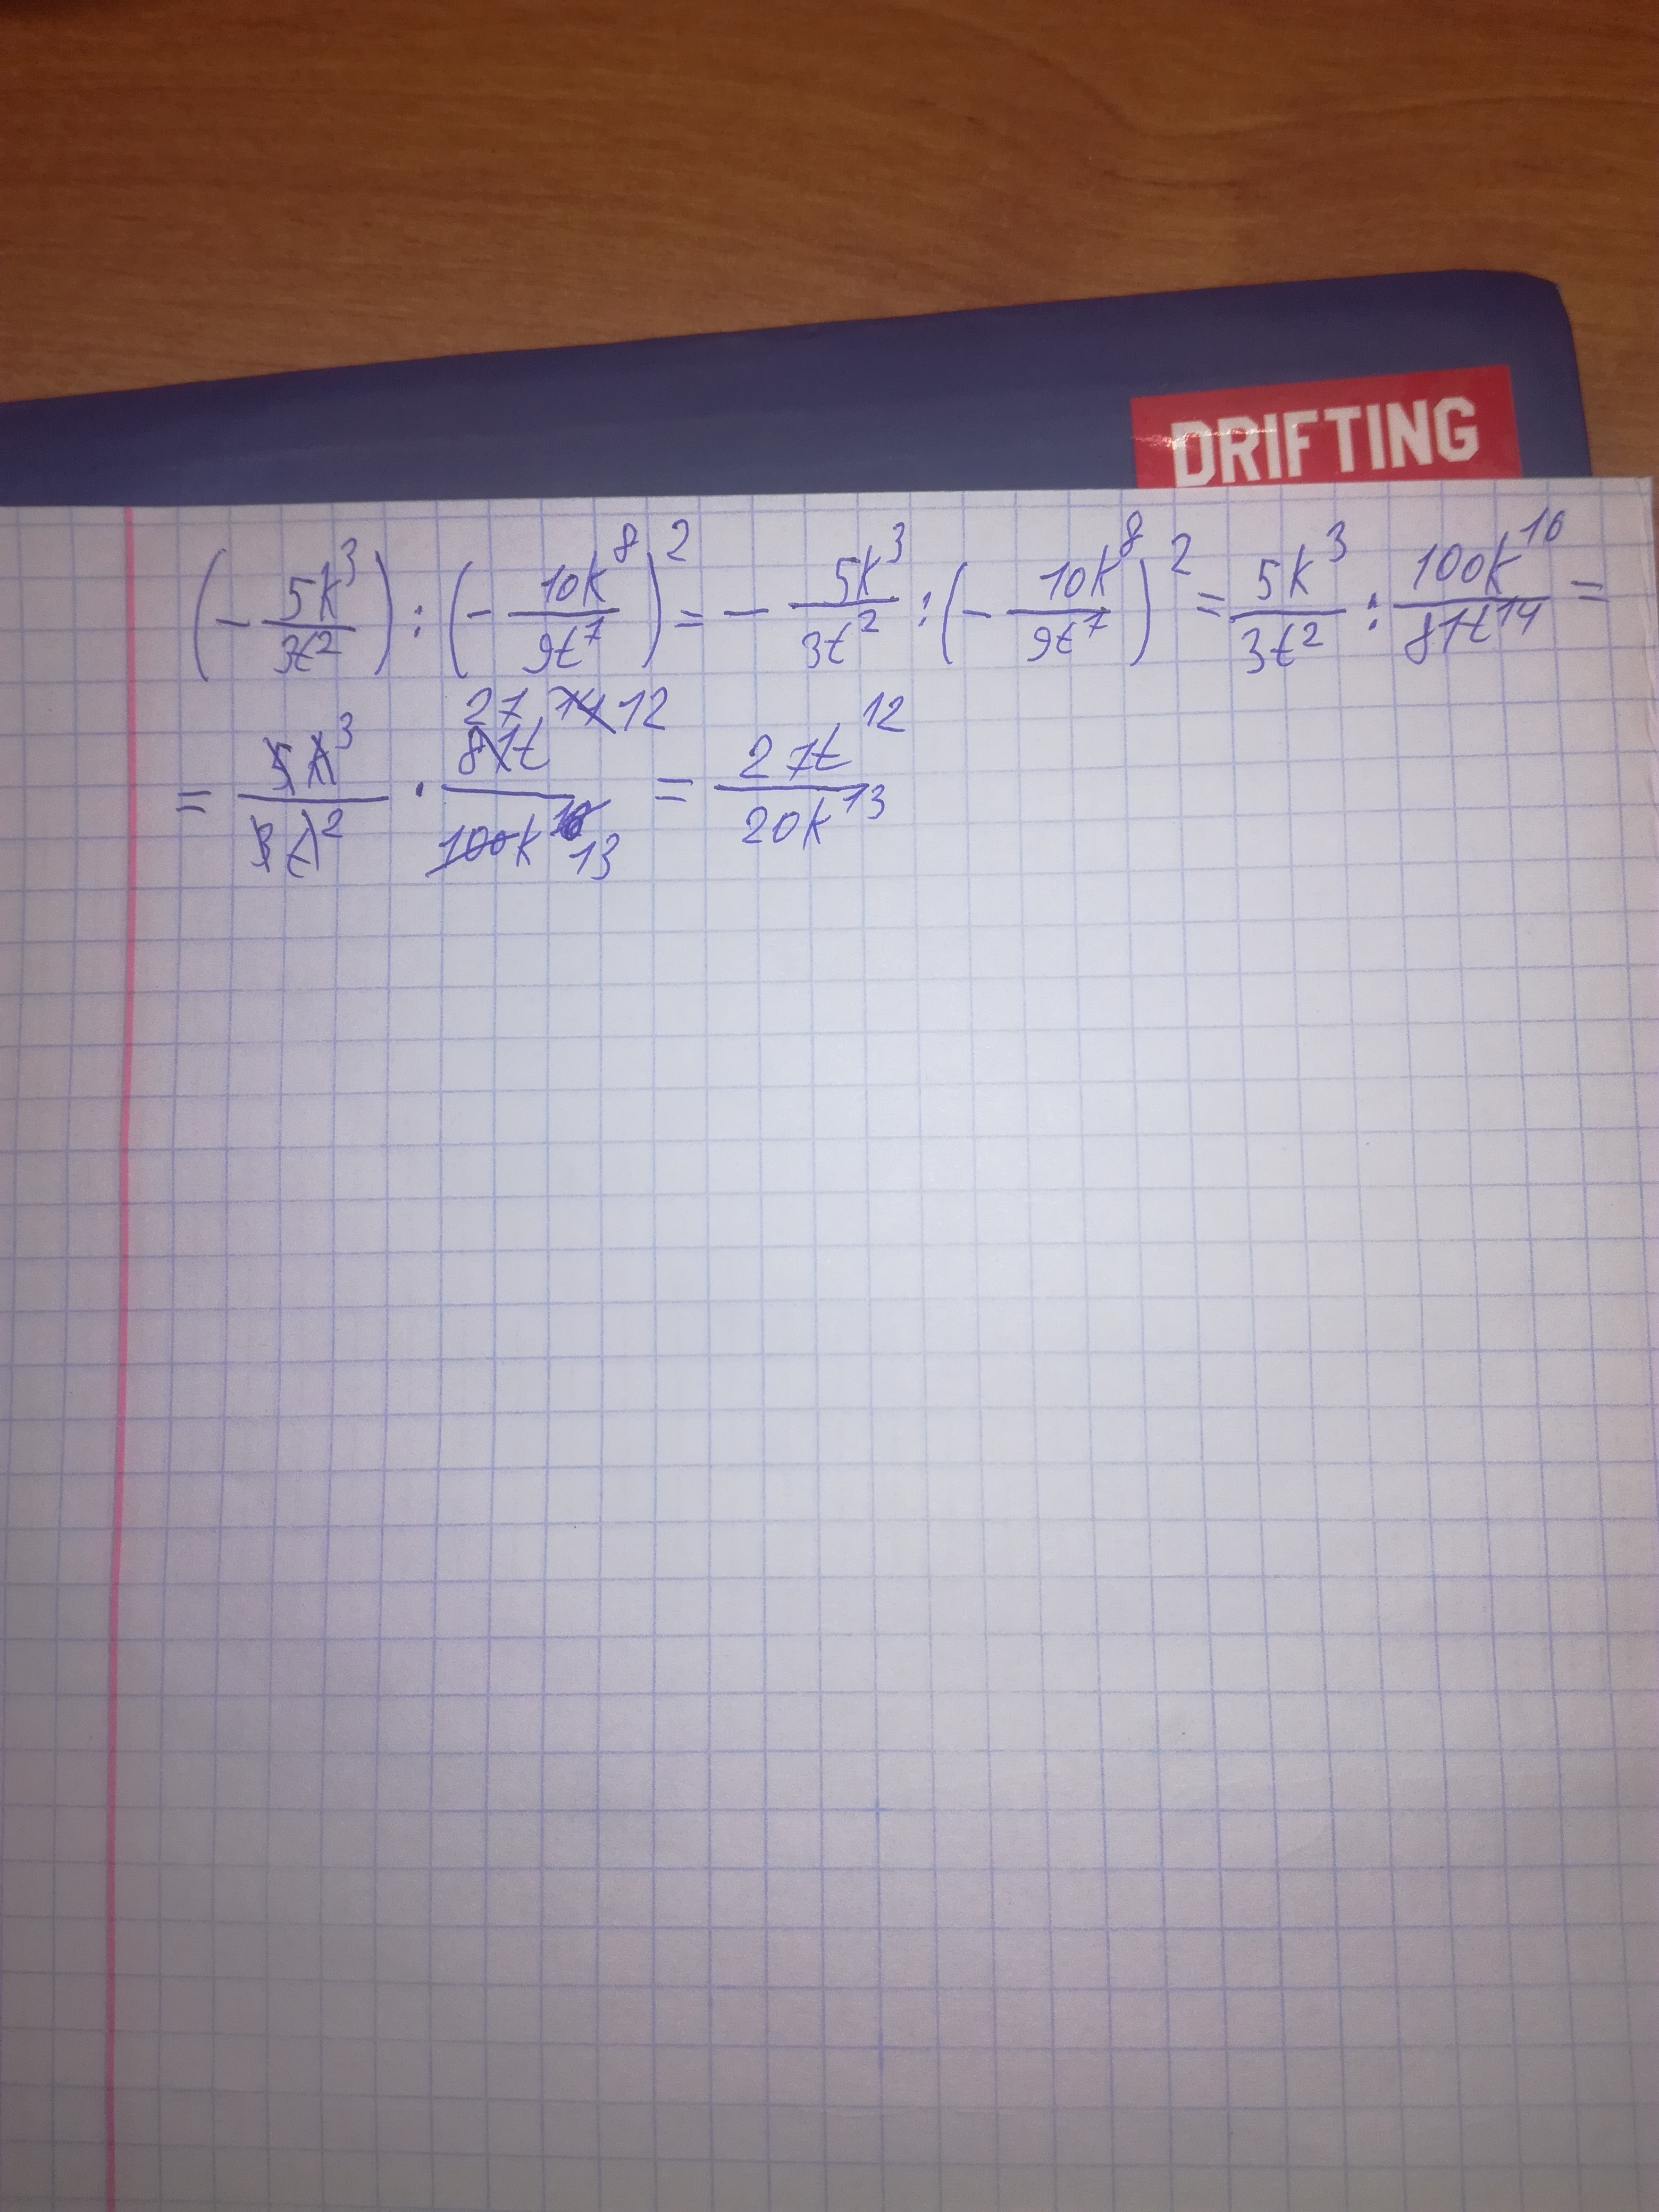 DRIFTING
(- 5k³/3t²) : (- 10k⁸/9t⁷)² = - 5k³/3t² : (- 10k⁸/9t⁷)² = 5k³/3t² : 100k¹⁶/81t¹⁴ =
= 5k³/3t² · 27 81t 14 12/100k 16 13 = 27t¹²/20k¹³